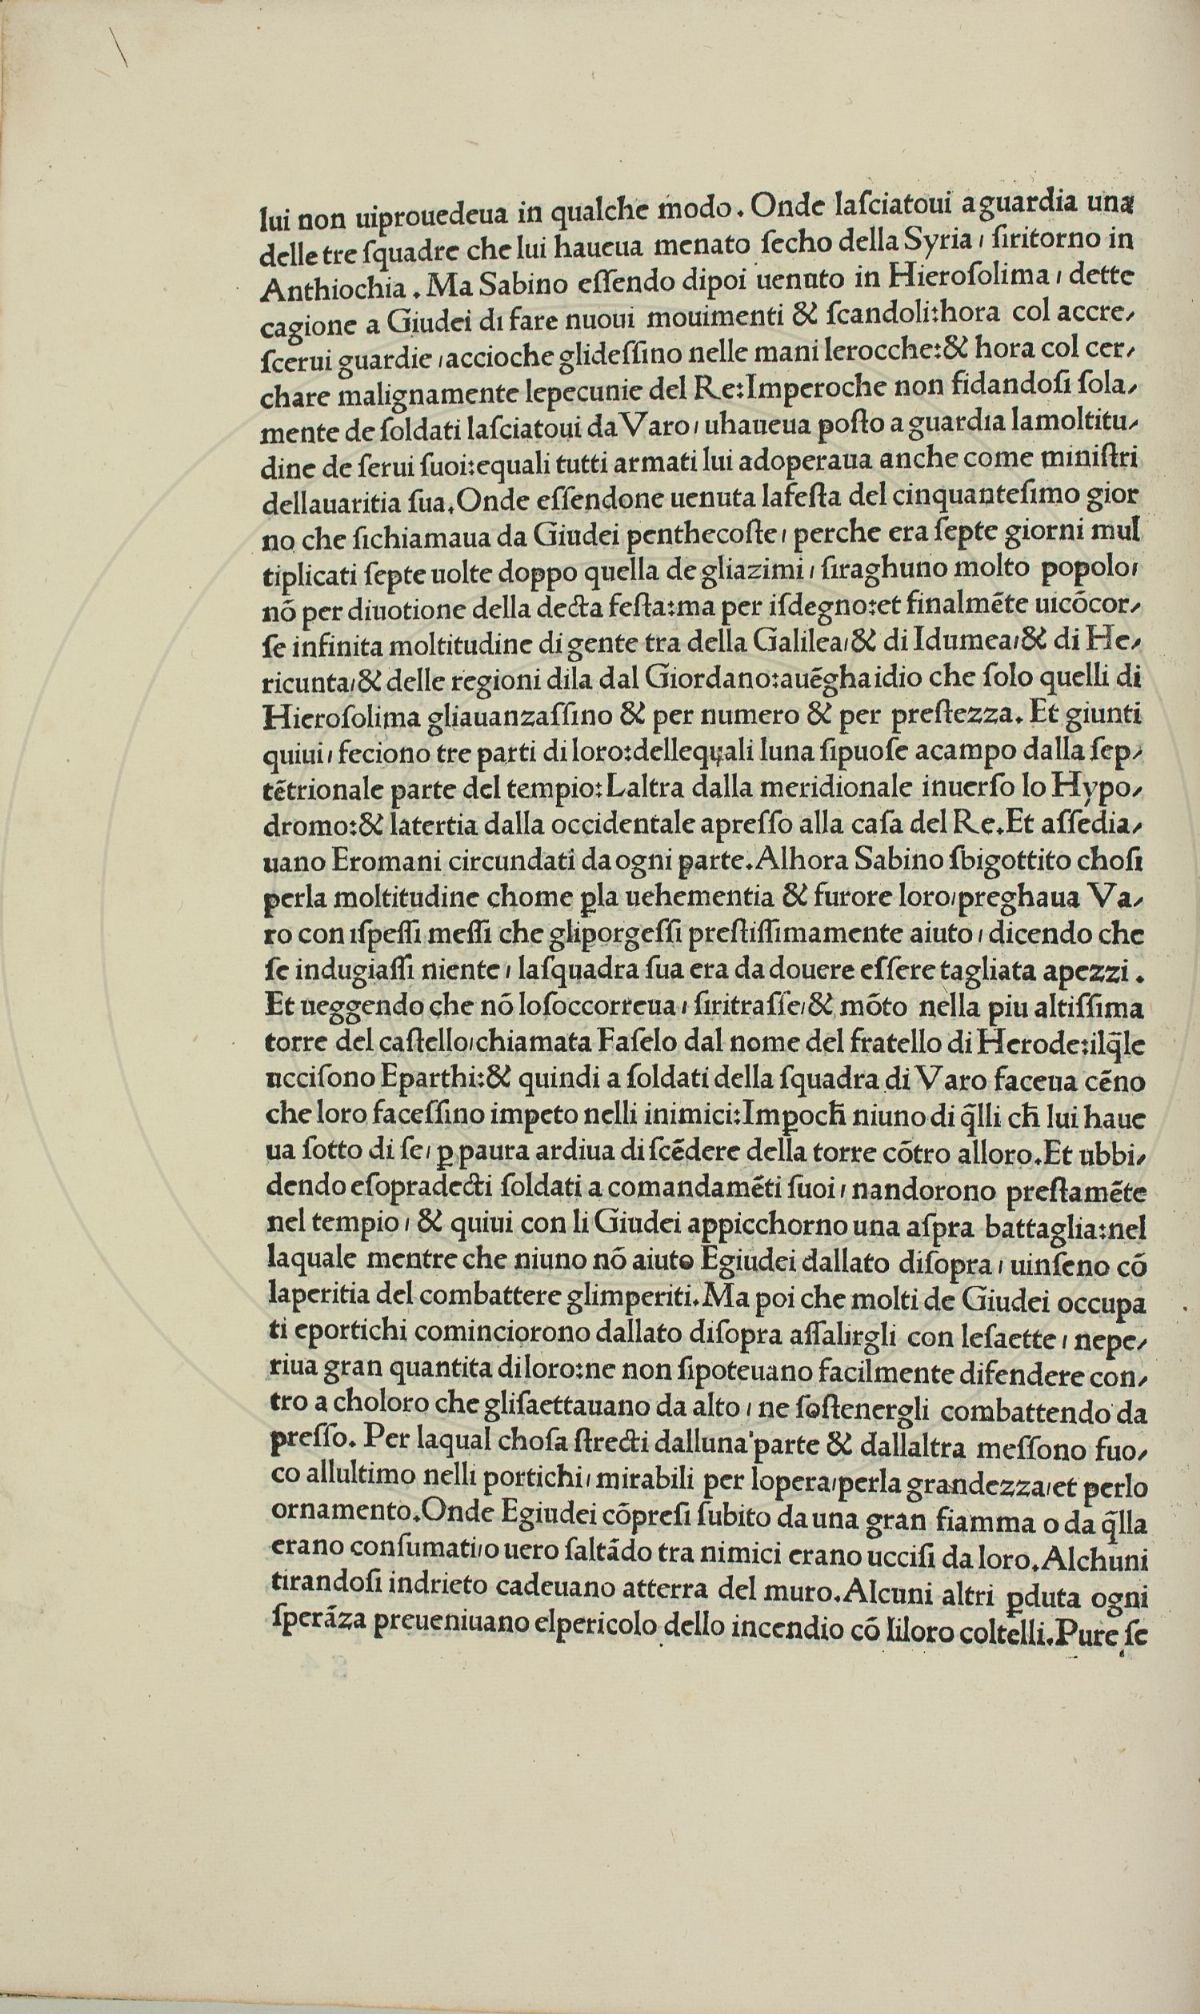 lui non uiprouedeua in qualche modo. Onde laſciatoui aguardia una
delle tre ſquadre che lui haueua menato ſecho della Syria / ſiritorno in
Anthiochia. Ma Sabino eſſendo dipoi uenuto in Hieroſolima / dette
cagione a Giudei di fare nuoui mouimenti & ſcandoli:hora col accre/
ſcerui guardie /accioche glideſſino nelle mani lerocche:& hora col cer/
chare malignamente lepecunie del Re:Imperoche non fidandoſi ſola/
mente de ſoldati laſciatoui da Varo/ uhaueua poſto a guardia lamoltitu/
dine de ſerui ſuoi:equali tutti armati lui adoperaua anche come miniſtri
dellauaritia ſua.Onde eſſendone uenuta lafeſta del cinquanteſimo gior
no che ſichiamaua da Giudei penthecoſte/ perche era ſepte giorni mul
tiplicati ſepte uolte doppo quella de gliazimi / ſiraghuno molto popolo/
nō per diuotione della decta feſta:ma per iſdegno:et finalmēte uicōcor/
ſe infinita moltitudine di gente tra della Galilea/& di Idumea/& di He/
ricunta/& delle regioni dila dal Giordano:auēgha idio che ſolo quelli di
Hieroſolima gliauanzaſſino & per numero & per preſtezza. Et giunti
quiui/ feciono tre parti di loro:dellequali luna ſipuoſe acampo dalla ſep/
tētrionale parte del tempio:Laltra dalla meridionale inuerſo lo Hypo/
dromo:& latertia dalla occidentale apreſſo alla caſa del Re.Et aſſedia/
uano Eromani circundati da ogni ꝑarte.Alhora Sabino ſbigottito choſi
ꝑerla moltitudine chome ꝑla uehementia & furore loro/preghaua Va/
ro con iſpeſſi meſſi che gliporgeſſi preſtiſſimamente aiuto / dicendo che
ſe indugiaſſi niente / laſquadra ſua era da douere eſſere tagliata apezzi.
Et ueggendo che nō loſoccorreua / ſiritraſſe/& mōto nella piu altiſſima
torre del caſtello/chiamata Faſelo dal nome del fratello di Herode:ilq̄le
ucciſono Eparthi:& quindi a ſoldati della ſquadra di Varo faceua cēno
che loro faceſſino impeto nelli inimici:Imꝑoch̄ niuno di q̄lli ch̄ lui haue
ua ſotto di ſe/ ꝑ paura ardiua di ſcēdere della torre cōtro alloro.Et ubbi/
dendo eſopradecti ſoldati a comandamēti ſuoi / nandorono preſtamēte
nel tempio / & quiui con li Giudei appicchorno una aſpra battaglia:nel
laquale mentre che niuno nō aiuto Egiudei dallato diſopra / uinſeno cō
laperitia del combattere glimperiti.Ma poi che molti de Giudei occupa
ti eportichi cominciorono dallato diſopra aſſalirgli con leſaette / nepe/
riua gran quantita diloro:ne non ſipoteuano facilmente difendere con/
tro a choloro che gliſaettauano da alto / ne ſoſtenergli combattendo da
preſſo. Per laqual choſa ſtrecti dalluna parte & dallaltra meſſono fuo/
co allultimo nelli portichi/ mirabili per lopera/perla grandezza/et perlo
ornamento.Onde Egiudei cōpreſi ſubito da una gran fiamma o da q̄lla
erano conſumati/o uero ſaltādo tra nimici erano ucciſi da loro.Alchuni
tirandoſi indrieto cadeuano atterra del muro.Alcuni altri ꝑduta ogni
ſperāza preueniuano elpericolo dello incendio cō liloro coltelli.Pure ſe